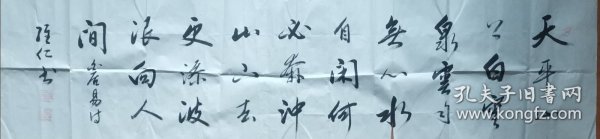 天平山
上白雲
泉雲自
無心水
自闲何
必奔沖
山下去
更添波
浪向人
间
白居易诗
仁书
孔夫子旧书网